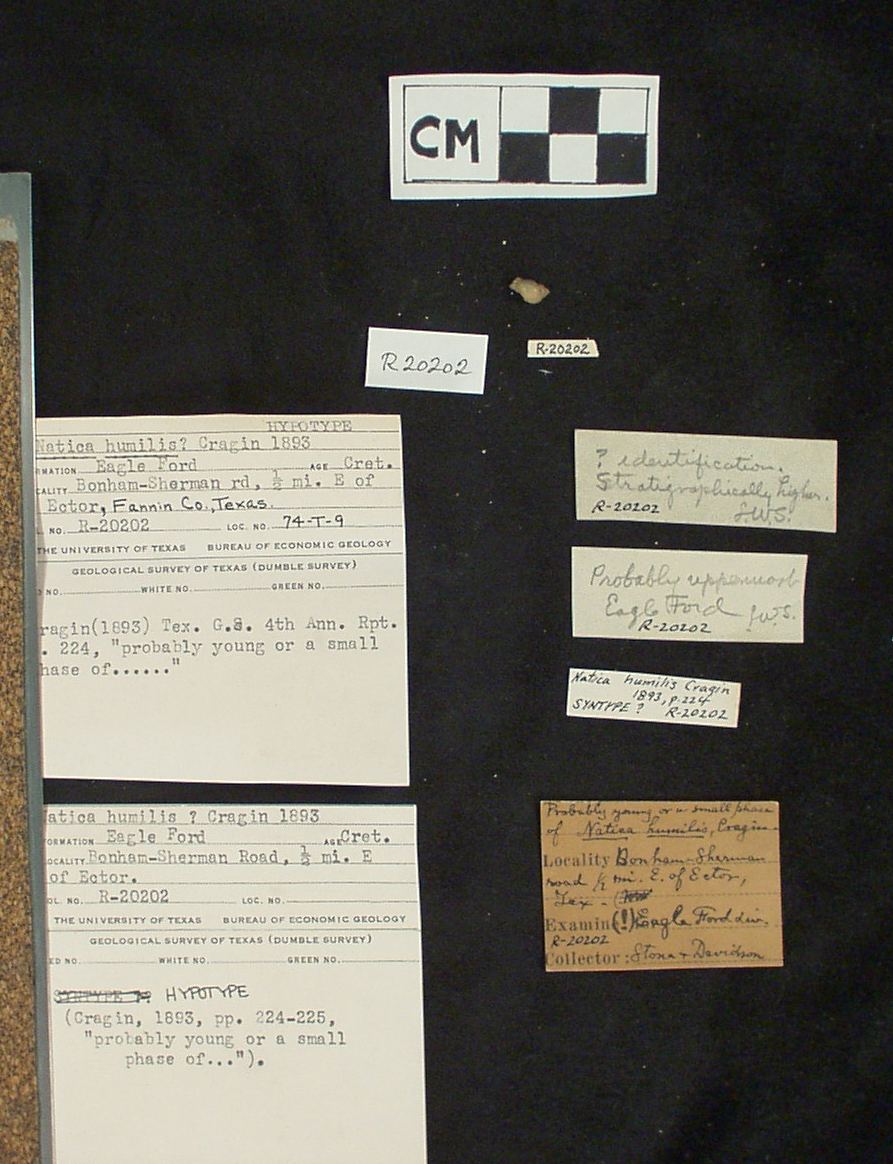 CM
R20202
R-20202
HYPOTYPE
Natica humilis? Cragin 1893
RMATION Eagle Ford AGE Cret.
CALITY Bonham-Sherman rd, ½ mi. E of
Ector, Fannin Co., Texas.
. NO. R-20202 LOC. NO. 74-T-9
THE UNIVERSITY OF TEXAS BUREAU OF ECONOMIC GEOLOGY
GEOLOGICAL SURVEY OF TEXAS (DUMBLE SURVEY)
D NO. WHITE NO. GREEN NO.
ragin(1893) Tex. G.S. 4th Ann. Rpt.
. 224, "probably young or a small
hase of......"
atica humilis ? Cragin 1893
ORMATION Eagle Ford AGE Cret.
OCALITY Bonham-Sherman Road, ½ mi. E
of Ector.
OL. NO. R-20202 LOC. NO.
THE UNIVERSITY OF TEXAS BUREAU OF ECONOMIC GEOLOGY
GEOLOGICAL SURVEY OF TEXAS (DUMBLE SURVEY)
ED NO. WHITE NO. GREEN NO.
SYNTYPE ? HYPOTYPE
(Cragin, 1893, pp. 224-225,
"probably young or a small
phase of...").
? identification.
Stratigraphically higher.
R-20202 J.W.S.
Probably uppermost
Eagle Ford J.W.S.
R-20202
Natica humilis Cragin
1893, p.224
SYNTYPE ? R-20202
Probably young or a small phase
of Natica humilis, Cragin.
Locality Bonham-Sherman
road ½ mi. E. of Ector,
Tex. (
Examin(!) Eagle Ford div.
R-20202
Collector: Stone & Davidson